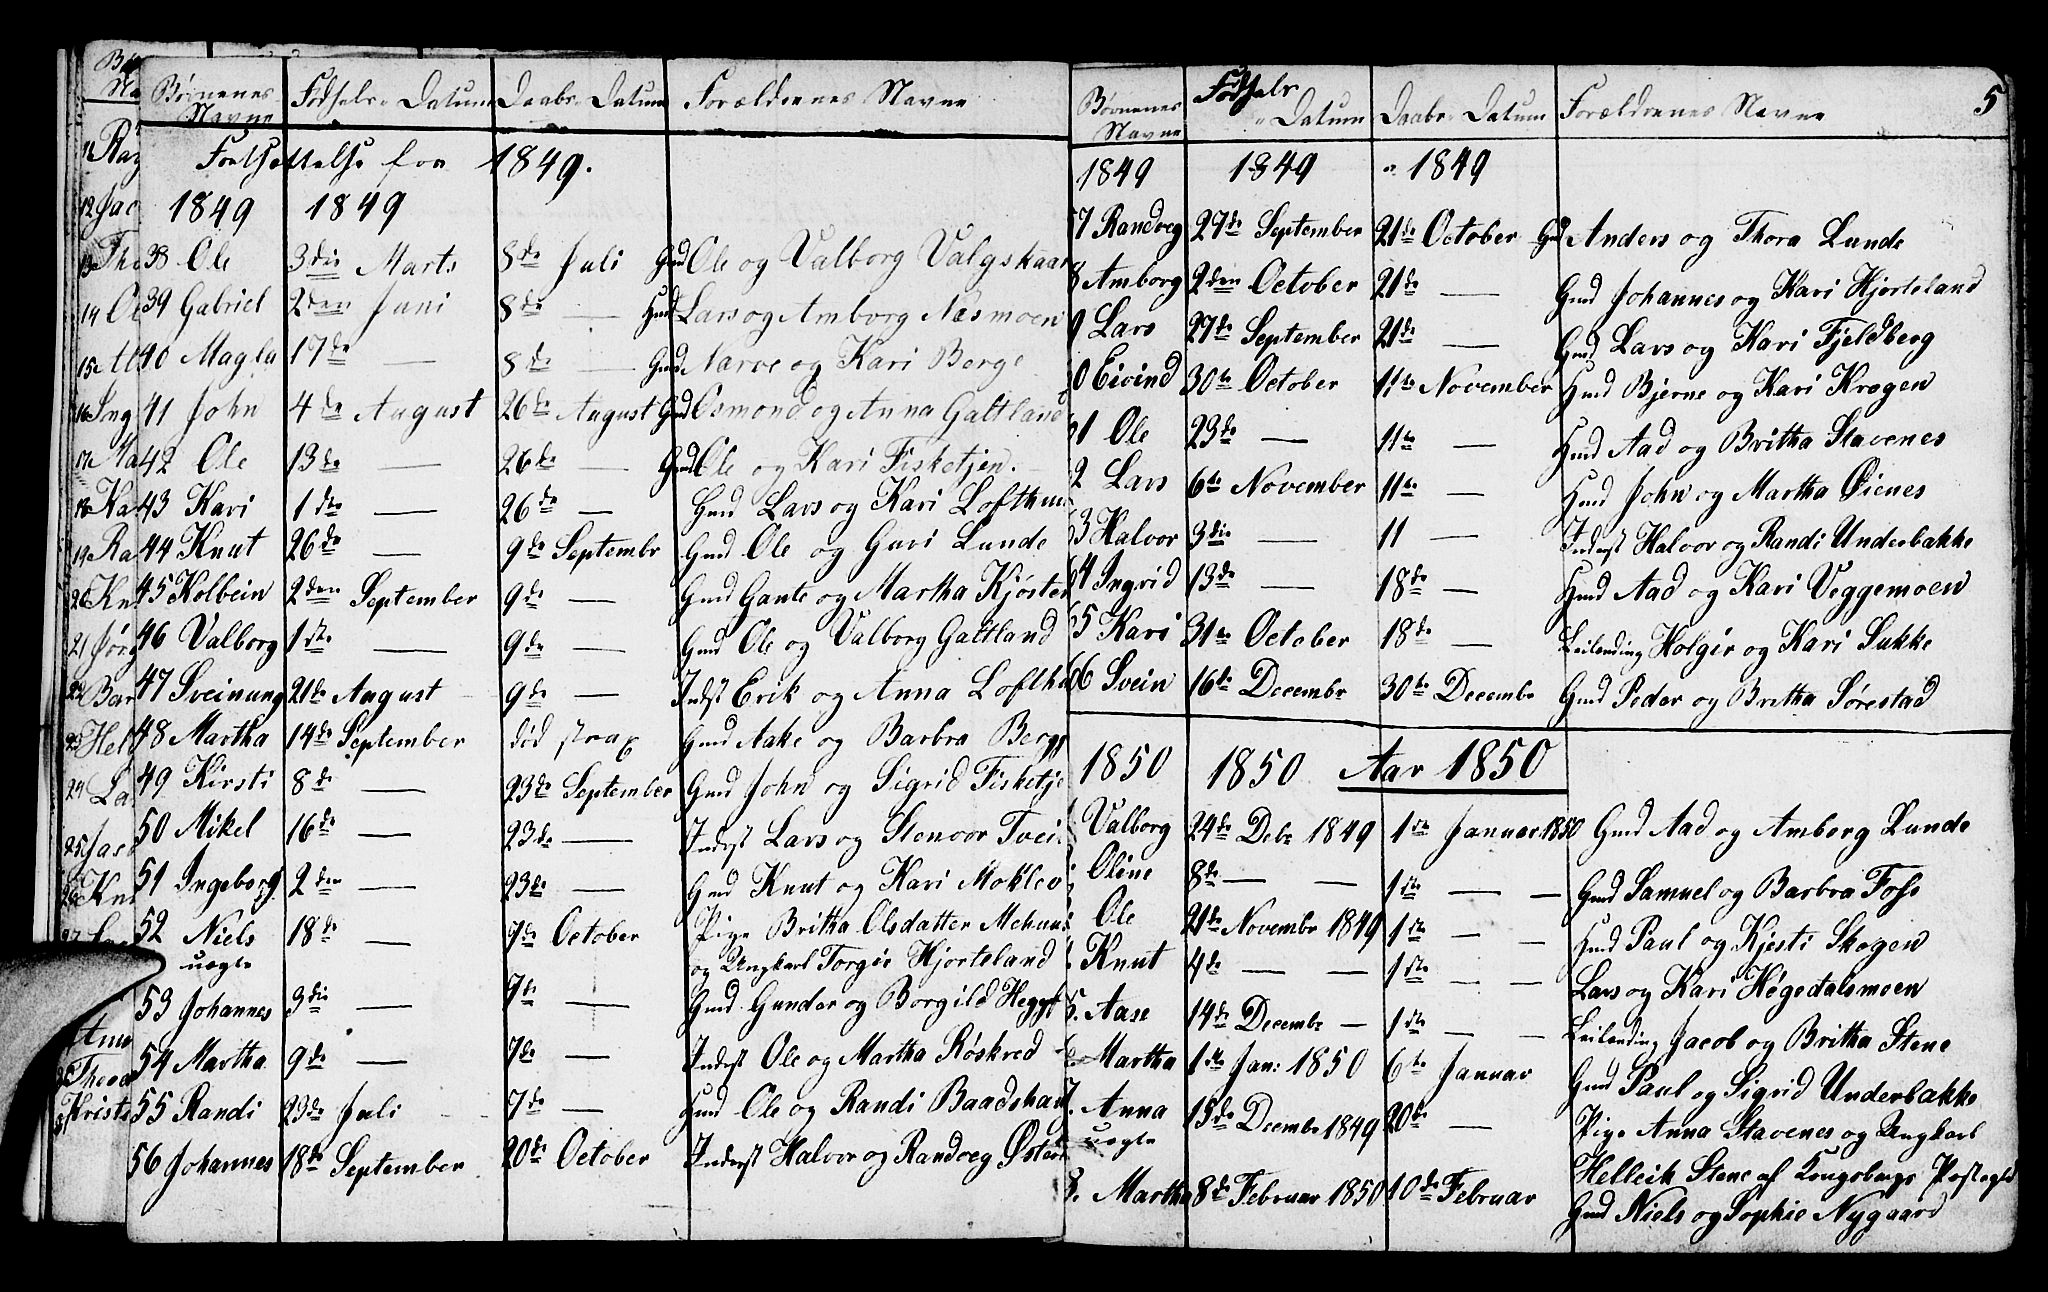 Børnenes Navne Fødsels-Datum Daabs-Datum Forældrenes Navne
Fortsættelse for 1849.
1849 1849
38 Ole 3die Marts 8de Juli Gmd Ole og Valborg Valgskaar
39 Gabriel 2den Juni 8de — Hmd Lars og Amborg Næsmoen
40 Magla 17de — 8de — Gmd Narve og Kari Berge
41 John 4de August 26de August Gmd Osmond og Anna Galtland
42 Ole 13de — 26de — Gmd Ole og Kari Fisketjen.
43 Kari 1ste — 26de — Gmd Lars og Kari Lofthuu
44 Knut 26de — 9de Septembr Gmd Ole og Guri Lunde
45 Kolbein 2den September 9de — Gmd Gaute og Martha Kjøsten
46 Valborg 1ste — 9de — Gmd Ole og Valborg Galtland
47 Sveinung 21de August 9de — Inderst Erik og Anna Lofthu
48 Martha 14de September død strax Gmd Aake og Barbra Berg
49 Kirsti 8de — 23de September Gmd John og Sigrid Fisketje
50 Mikel 16de — 23de — Inderst Lars og Stenvor Tvei
51 Ingeborg 2den — 23de — Gmd Knut og Kari Moklev
52 Niels 18de — 7de October Pige Britha Olsdatter Mehuus
uægte og Ungkarl Torgie Hjorteland
53 Johannes 3die — 7de — Gmd. Gunder og Borgild Heggt
54 Martha 9de — 7de — Inderst Ole og Martha Røskred
55 Randi 23de Juli 7de — Hmd Ole og Randi Baadshau
56 Johannes 18de September 20de October Inderst Halvor og Randveg Østen
Børnenes Navne Fødsels-Datum Daabs-Datum Forældrenes Navne 5
1849 1849 1849
7 Randveg 27de September 21de October Gmd Anders og Thora Lunde
8 Amborg 2den October 21de — Gmd Johannes og Kari Hjorteland
9 Lars 27de September 21de — Gmd Lars og Kari Fjeldberg
0 Eivind 30te October 11te November Hmd Bjerne og Kari Krogen
61 Ole 23de — 11te — Hmd Aad og Britha Stavenes
2 Lars 6te November 11te — Hmd John og Martha Øienes
63 Halvor 3die — 11 — Inderst Halvor og Randi Underbakke
64 Ingrid 13de — 18de — Hmd Aad og Kari Veggemoen
65 Kari 31te October 18de — Leilending Holgir og Kari Lukke
66 Svein 16de Decembr 30te Decembr Gmd Peder og Britha Sørestad
1850 1850 Aar 1850
Valborg 24de Debr 1849 1ste Januar 1850 Gmd Aad og Amborg Lunde
Oline 8de — — 1ste — — Gmd Samuel og Barbra Foss
Ole 21de Novembr 1849 1ste — — Hmd Paul og Kjesti Skogen
Knut 4de — — 1ste — — Lars og Kari Høgedalsmoen
5. Aase 14de Decembr — 1ste — — Leilending Jacob og Britha Stene
6. Martha 1ste Jan: 1850 6te Januar Gmd Paul og Sigrid Underbakke
7. Anna 15de Decembr 1849 20de — Pige Anna Stavenes og Ungkarl
uægte Helleik Stene af Kongsbergs Præstegld
8. Martha 8de Februar 1850 10de Februar Gmd Niels og Sophie Nygaard